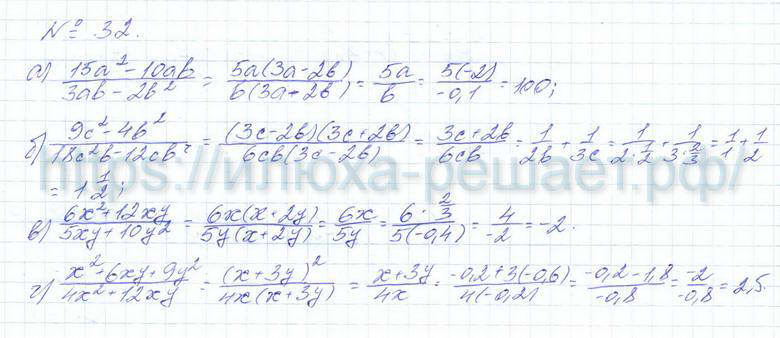 № 32.
а) (15a² - 10ab)/(3ab - 2b²) = 5a(3a-2b)/b(3a-2b) = 5a/b = 5(-2)/-0,1 = 100;
б) (9c² - 4b²)/(18c²b - 12cb²) = (3c-2b)(3c+2b)/6cb(3c-2b) = (3c+2b)/6cb = 1/2b + 1/3c = 1/(2·1/2) + 1/(3·2/3) = 1/1 + 1/2
= 1 1/2;
https://илюха-решает.рф/
в) (6x² + 12xy)/(5xy + 10y²) = 6x(x+2y)/5y(x+2y) = 6x/5y = (6·2/3)/5(-0,4) = 4/-2 = -2.
г) (x² + 6xy + 9y²)/(4x² + 12xy) = (x+3y)²/4x(x+3y) = (x+3y)/4x = (-0,2+3(-0,6))/4(-0,2) = (-0,2-1,8)/-0,8 = -2/-0,8 = 2,5.